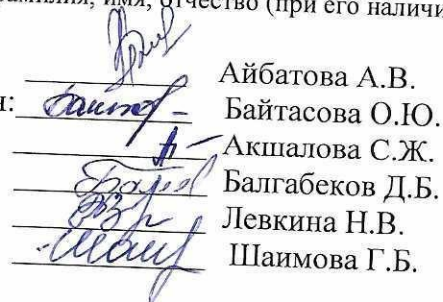 фамилия, имя, отчество (при его наличи
Айбатова А.В.
н: Байтасова О.Ю.
Акшалова С.Ж.
Балгабеков Д.Б.
Левкина Н.В.
Шаимова Г.Б.